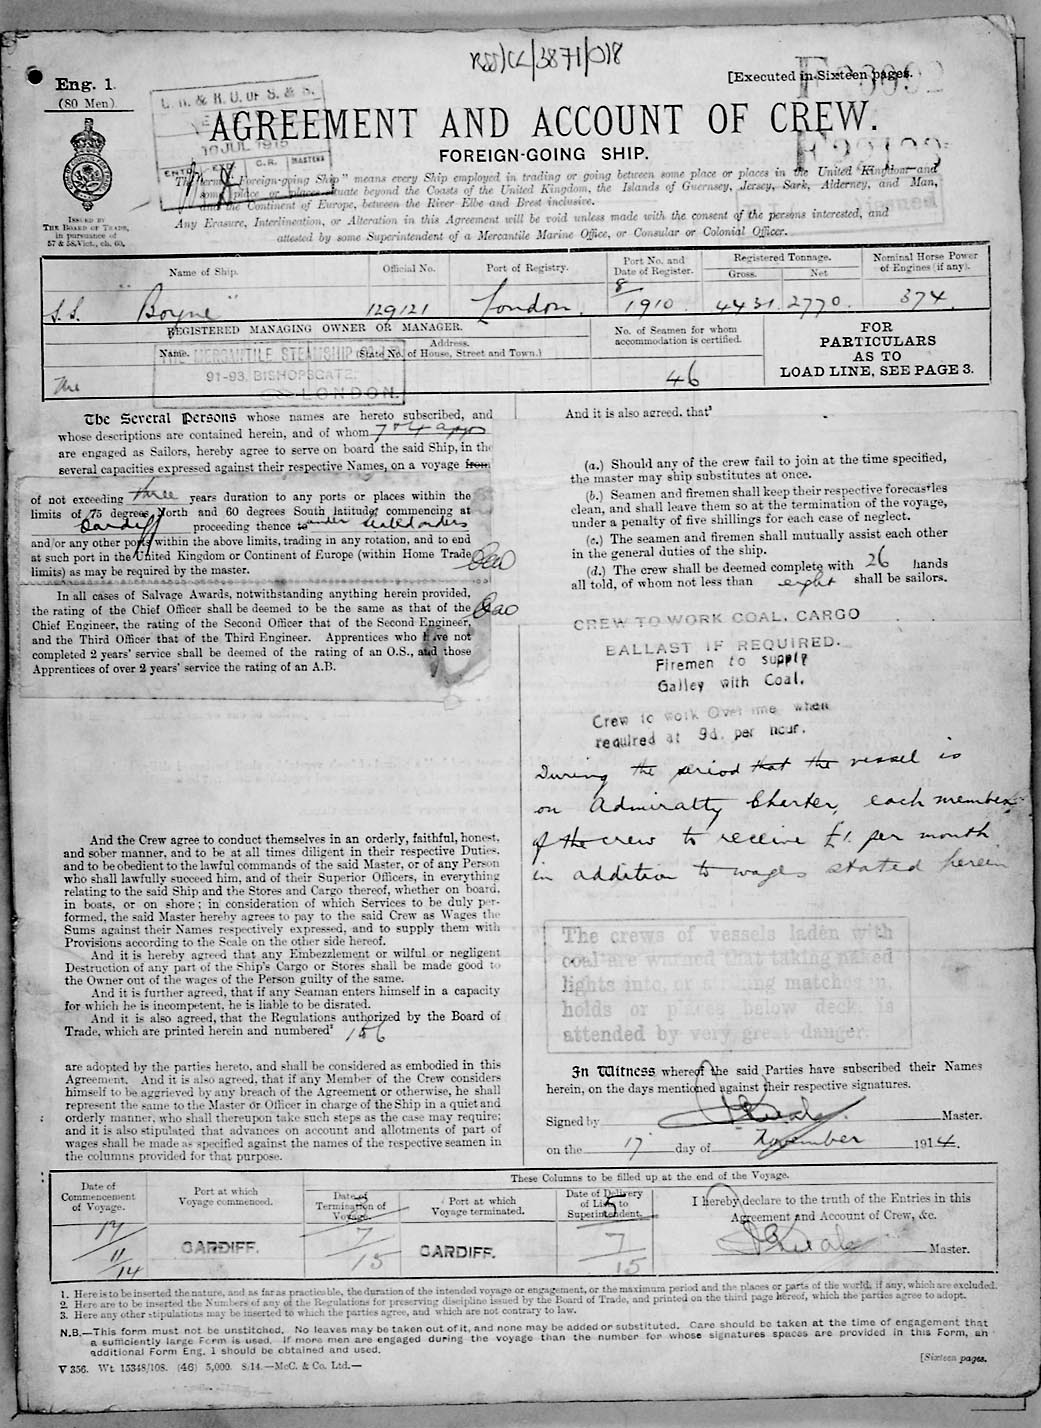 RSS/CL/3871/018
Eng. 1.
(80 Men)
[Executed in Sixteen pages.
AGREEMENT AND ACCOUNT OF CREW.
FOREIGN-GOING SHIP.
10 JUL 1915
C.R. MASTERS
The term "Foreign-going Ship" means every Ship employed in trading or going between some place or places in the United Kingdom and
some place or places situate beyond the Coasts of the United Kingdom, the Islands of Guernsey, Jersey, Sark, Alderney, and Man,
and the Continent of Europe, between the River Elbe and Brest inclusive.
Any Erasure, Interlineation, or Alteration in this Agreement will be void unless made with the consent of the persons interested, and
attested by some Superintendent of a Mercantile Marine Office, or Consular or Colonial Officer.
ISSUED BY
THE BOARD OF TRADE,
in pursuance of
57 & 58, Vict., ch. 60.
Name of Ship.
Official No.
Port of Registry.
Port No. and
Date of Register.
Registered Tonnage.
Gross.
Net
Nominal Horse Power
of Engines (if any).
S.S. "Boyne"
129121
London.
8
1910
4431
2770.
374.
REGISTERED MANAGING OWNER OR MANAGER.
Name.
Address.
(State No. of House, Street and Town.)
No. of Seamen for whom
accommodation is certified.
FOR
PARTICULARS
AS TO
LOAD LINE, SEE PAGE 3.
The
MERCANTILE STEAMSHIP CO LTD
91-93, BISHOPSGATE,
LONDON.
46
The Several Persons whose names are hereto subscribed, and
whose descriptions are contained herein, and of whom
are engaged as Sailors, hereby agree to serve on board the said Ship, in the
several capacities expressed against their respective Names, on a voyage from
of not exceeding three years duration to any ports or places within the
limits of 75 degrees North and 60 degrees South latitude, commencing at
Cardiff proceeding thence to under sealed orders
and/or any other ports within the above limits, trading in any rotation, and to end
at such port in the United Kingdom or Continent of Europe (within Home Trade
limits) as may be required by the master.
In all cases of Salvage Awards, notwithstanding anything herein provided,
the rating of the Chief Officer shall be deemed to be the same as that of the
Chief Engineer, the rating of the Second Officer that of the Second Engineer,
and the Third Officer that of the Third Engineer. Apprentices who have not
completed 2 years' service shall be deemed of the rating of an O.S., and those
Apprentices of over 2 years' service the rating of an A.B.
And the Crew agree to conduct themselves in an orderly, faithful, honest,
and sober manner, and to be at all times diligent in their respective Duties,
and to be obedient to the lawful commands of the said Master, or of any Person
who shall lawfully succeed him, and of their Superior Officers, in everything
relating to the said Ship and the Stores and Cargo thereof, whether on board,
in boats, or on shore; in consideration of which Services to be duly per-
formed, the said Master hereby agrees to pay to the said Crew as Wages the
Sums against their Names respectively expressed, and to supply them with
Provisions according to the Scale on the other side hereof.
And it is hereby agreed that any Embezzlement or wilful or negligent
Destruction of any part of the Ship's Cargo or Stores shall be made good to
the Owner out of the wages of the Person guilty of the same.
And it is further agreed, that if any Seaman enters himself in a capacity
for which he is incompetent, he is liable to be disrated.
And it is also agreed, that the Regulations authorized by the Board of
Trade, which are printed herein and numbered² 1 to 6
are adopted by the parties hereto, and shall be considered as embodied in this
Agreement. And it is also agreed, that if any Member of the Crew considers
himself to be aggrieved by any breach of the Agreement or otherwise, he shall
represent the same to the Master or Officer in charge of the Ship in a quiet and
orderly manner, who shall thereupon take such steps as the case may require;
and it is also stipulated that advances on account and allotments of part of
wages shall be made as specified against the names of the respective seamen in
the columns provided for that purpose.
And it is also agreed, that³
(a.) Should any of the crew fail to join at the time specified,
the master may ship substitutes at once.
(b.) Seamen and firemen shall keep their respective forecastles
clean, and shall leave them so at the termination of the voyage,
under a penalty of five shillings for each case of neglect.
(c.) The seamen and firemen shall mutually assist each other
in the general duties of the ship.
(d.) The crew shall be deemed complete with 26 hands
all told, of whom not less than eight shall be sailors.
CREW TO WORK COAL, CARGO
BALLAST IF REQUIRED.
Firemen to supply
Galley with Coal.
Crew to work Overtime when
required at 9d. per hour.
During the period that the vessel is
on Admiralty Charter, each member
of the crew to receive £1 per month
in addition to wages stated herein
The crews of vessels laden with
coal are warned that taking naked
lights into, or striking matches in,
holds or places below deck is
attended by very great danger.
In Witness whereof the said Parties have subscribed their Names
herein, on the days mentioned against their respective signatures.
Signed by Master.
on the 17 day of November 1914.
Date of
Commencement
of Voyage.
Port at which
Voyage commenced.
These Columns to be filled up at the end of the Voyage.
Date of
Termination of
Voyage.
Port at which
Voyage terminated.
Date of Delivery
of Lists to
Superintendent.
I hereby declare to the truth of the Entries in this
Agreement and Account of Crew, &c.
Master.
17/11/14
CARDIFF.
7/15
CARDIFF.
5/7/15
1. Here is to be inserted the nature, and as far as practicable, the duration of the intended voyage or engagement, or the maximum period and the places or parts of the world, if any, which are excluded.
2. Here are to be inserted the Numbers of any of the Regulations for preserving discipline issued by the Board of Trade, and printed on the third page hereof, which the parties agree to adopt.
3. Here any other stipulations may be inserted to which the parties agree, and which are not contrary to law.
N.B.—This form must not be unstitched. No leaves may be taken out of it, and none may be added or substituted. Care should be taken at the time of engagement that
a sufficiently large Form is used. If more men are engaged during the voyage than the number for whose signatures spaces are provided in this Form, an
additional Form Eng. 1 should be obtained and used.
V 356. Wt 15348/108. (46) 5,000. 8/14.—McC. & Co. Ltd.—
[Sixteen pages.